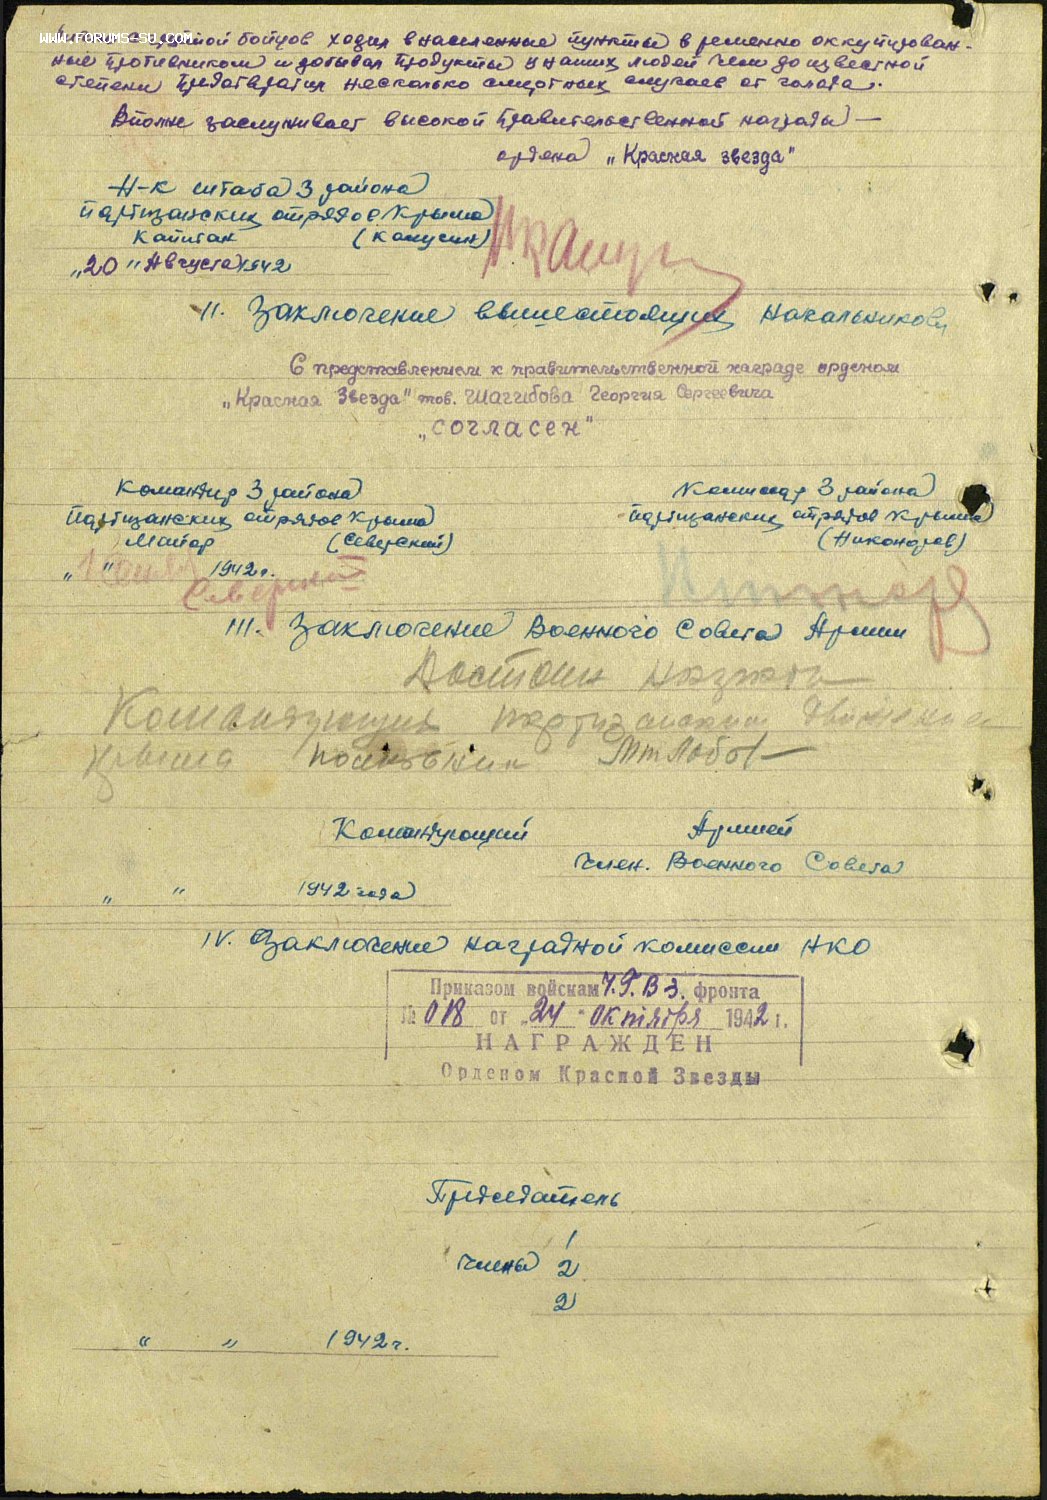 WWW.FORUMS-SU.COM
бойцов ходил в населенные пункты временно оккупирован-
ные противником и добывал продукты у наших людей чем до известной
степени предотвратил несколько смертных случаев от голода.
Вполне заслуживает высокой правительственной награды —
ордена „Красная звезда"
Н-к штаба 3 района
партизанских отрядов Крыма
Капитан
„20" Августа 1942
II. Заключение вышестоящих начальников
С представлением к правительственной награде орденом
„Красная Звезда" тов. Шагибова Георгия Сергеевича
„согласен"
Командир 3 района
партизанских отрядов Крыма
Майор (Северский)
„ " 1942 г.
Северский
Комиссар 3 района
партизанских отрядов Крыма
(Никаноров)
III. Заключение Военного Совета Армии
Достоин награды
Командующий партизанским движением
Крыма полковник
Командующий Армией
Член. Военного Совета
„ " 1942 года
IV. Заключение наградной комиссии НКО
Приказом войскам Ч.Г.В З. фронта
№ 018 от „24" октября 1942 г.
НАГРАЖДЕН
Орденом Красной Звезды
Председатель
1
Члены 2
2
„ " 1942 г.